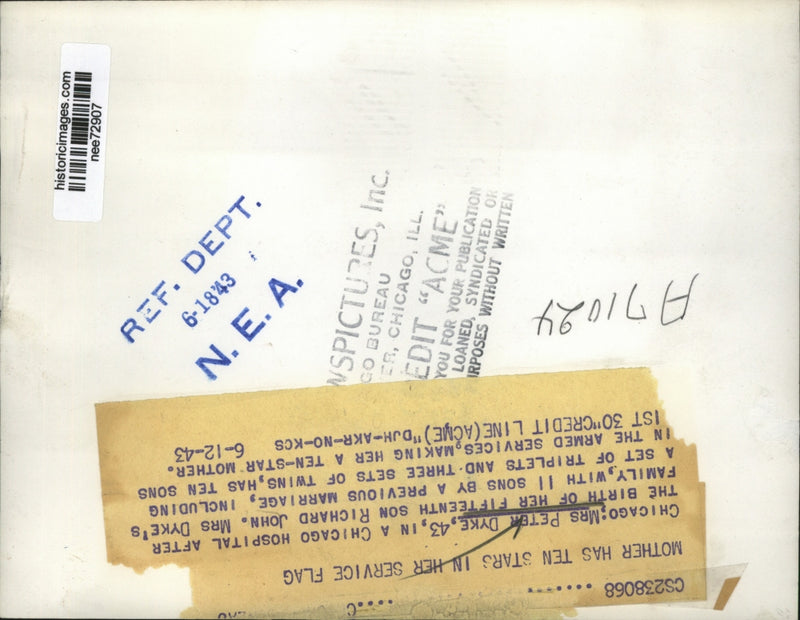 historicimages.com
nee72907
REF. DEPT.
6-18'43
N. E. A.
WSPICTURES, Inc.
GO BUREAU
ER, CHICAGO, ILL.
EDIT "ACME"
YOU FOR YOUR PUBLICATION
LOANED, SYNDICATED OR
RPOSES WITHOUT WRITTEN
A71024
CS238068
MOTHER HAS TEN STARS IN HER SERVICE FLAG
CHICAGO;MRS PETER DYKE,43,IN A CHICAGO HOSPITAL AFTER
THE BIRTH OF HER FIFTEENTH SON RICHARD JOHN. MRS DYKE'S
FAMILY,WITH 11 SONS BY A PREVIOUS MARRIAGE, INCLUDING
A SET OF TRIPLETS AND THREE SETS OF TWINS,HAS TEN SONS
IN THE ARMED SERVICES,MAKING HER A TEN-STAR MOTHER.
1ST 30"CREDIT LINE(ACME)"DJH-AKR-NO-KCS 6-12-43